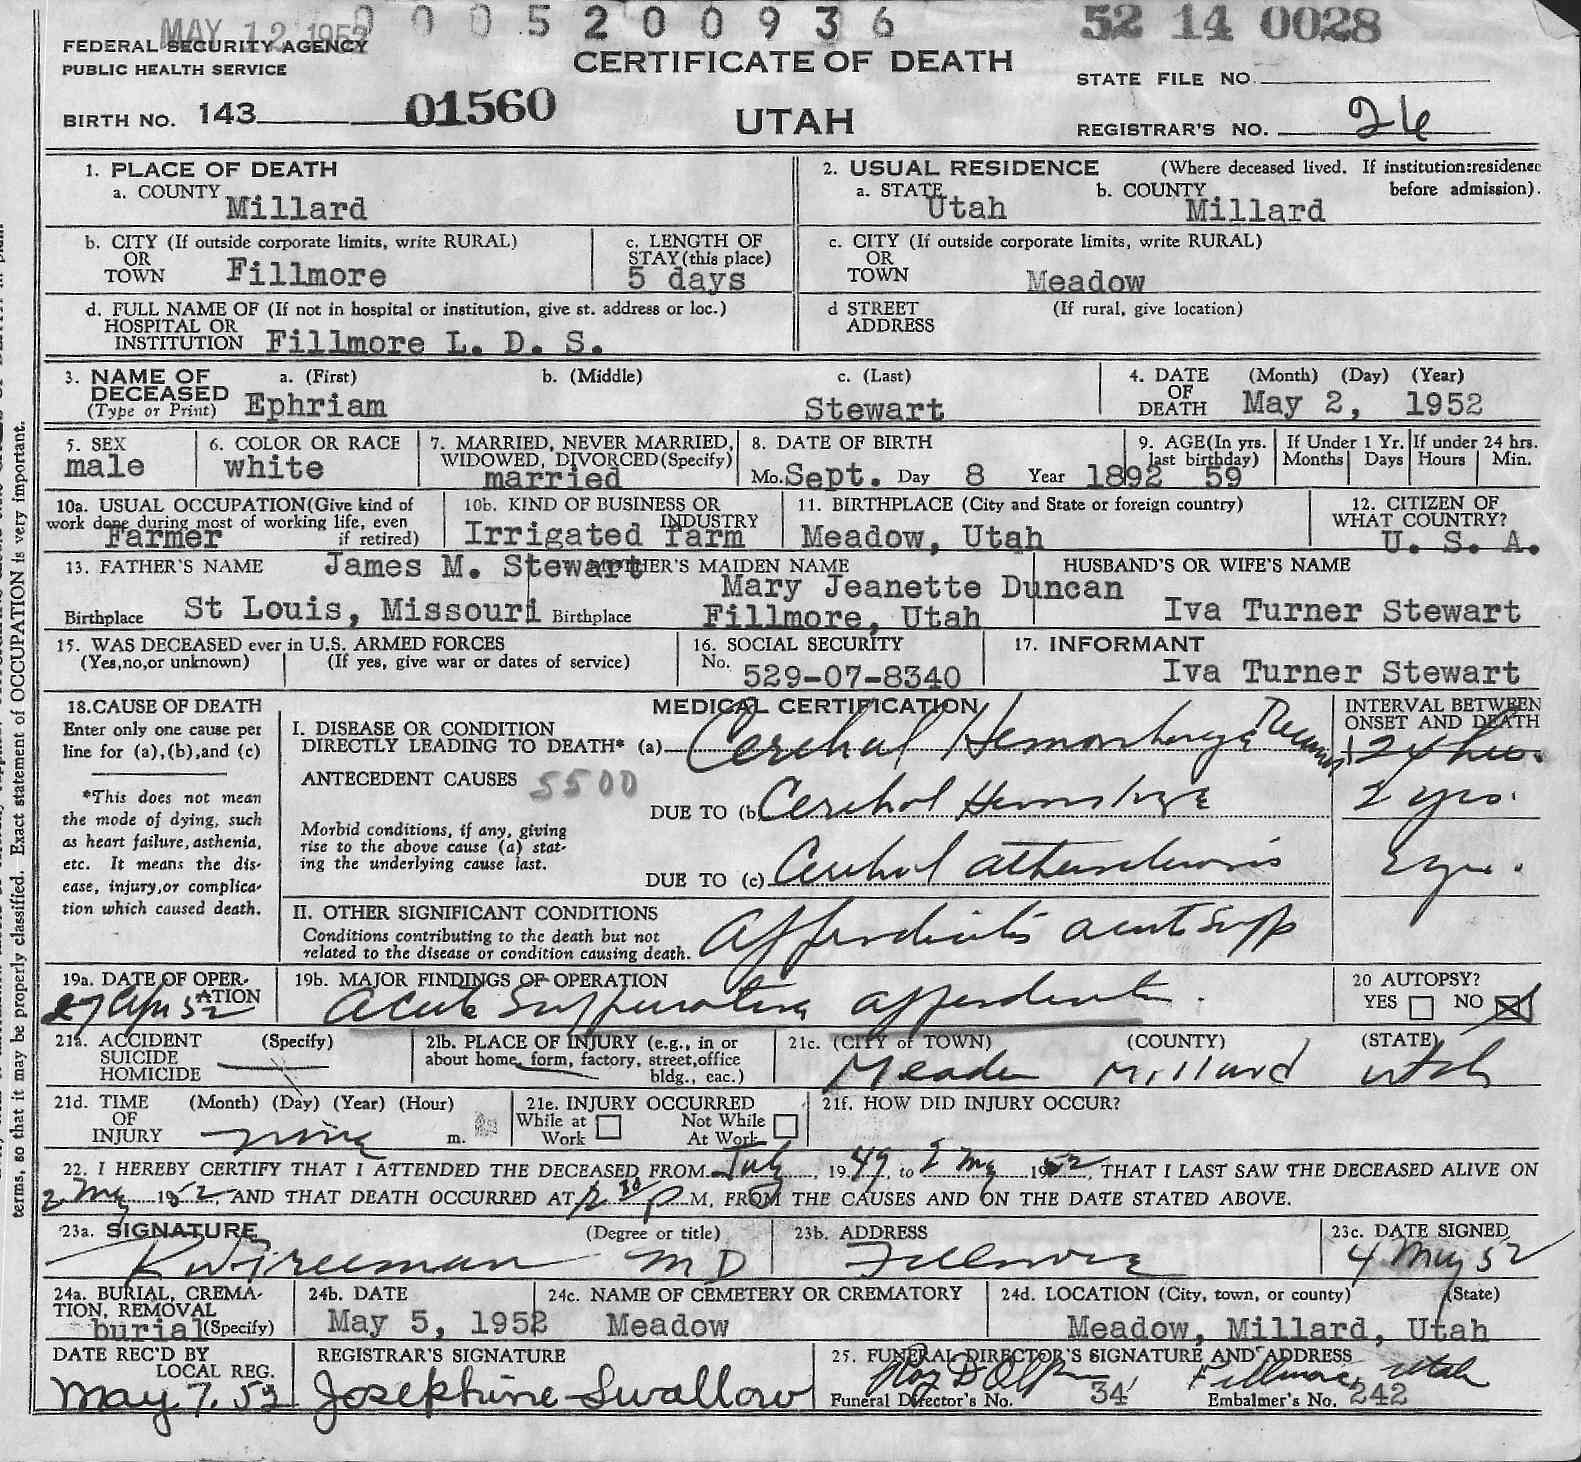 MAY 12 1952 0 0 0 5 2 0 0 9 3 6 52 14 0028
FEDERAL SECURITY AGENCY
PUBLIC HEALTH SERVICE
CERTIFICATE OF DEATH
STATE FILE NO.
BIRTH NO. 143 01560
UTAH
REGISTRAR'S NO. 26
1. PLACE OF DEATH
a. COUNTY
Millard
2. USUAL RESIDENCE (Where deceased lived. If institution:residence
before admission).
a. STATE Utah b. COUNTY Millard
b. CITY (If outside corporate limits, write RURAL)
OR
TOWN Fillmore
c. LENGTH OF
STAY(this place)
5 days
c. CITY (If outside corporate limits, write RURAL)
OR
TOWN Meadow
d. FULL NAME OF (If not in hospital or institution, give st. address or loc.)
HOSPITAL OR
INSTITUTION Fillmore L. D. S.
d STREET (If rural, give location)
ADDRESS
3. NAME OF a. (First) b. (Middle) c. (Last)
DECEASED
(Type or Print) Ephriam Stewart
4. DATE (Month) (Day) (Year)
OF
DEATH May 2, 1952
5. SEX
male
6. COLOR OR RACE
white
7. MARRIED, NEVER MARRIED,
WIDOWED, DIVORCED(Specify)
married
8. DATE OF BIRTH
Mo. Sept. Day 8 Year 1892
9. AGE(In yrs.
last birthday)
59
If Under 1 Yr.
Months Days
If under 24 hrs.
Hours Min.
10a. USUAL OCCUPATION(Give kind of
work done during most of working life, even
if retired)
Farmer
10b. KIND OF BUSINESS OR
INDUSTRY
Irrigated farm
11. BIRTHPLACE (City and State or foreign country)
Meadow, Utah
12. CITIZEN OF
WHAT COUNTRY?
U. S. A.
13. FATHER'S NAME James M. Stewart
Birthplace St Louis, Missouri
MOTHER'S MAIDEN NAME
Mary Jeanette Duncan
Birthplace Fillmore, Utah
HUSBAND'S OR WIFE'S NAME
Iva Turner Stewart
15. WAS DECEASED ever in U.S. ARMED FORCES
(Yes,no,or unknown) (If yes, give war or dates of service)
16. SOCIAL SECURITY
No. 529-07-8340
17. INFORMANT
Iva Turner Stewart
18.CAUSE OF DEATH
Enter only one cause per
line for (a),(b),and (c)
*This does not mean
the mode of dying, such
as heart failure, asthenia,
etc. It means the dis-
ease, injury,or complica-
tion which caused death.
MEDICAL CERTIFICATION
I. DISEASE OR CONDITION
DIRECTLY LEADING TO DEATH* (a) Cerebral Hemorrhage
INTERVAL BETWEEN
ONSET AND DEATH
24 hrs.
ANTECEDENT CAUSES 5500
DUE TO (b) Cerebral Hemorrhage 2 yrs.
Morbid conditions, if any, giving
rise to the above cause (a) stat-
ing the underlying cause last.
DUE TO (c) Cerebral atherosclerosis 2 yrs.
II. OTHER SIGNIFICANT CONDITIONS
Conditions contributing to the death but not
related to the disease or condition causing death.
Appendicitis acute Supp
19a. DATE OF OPER-
ATION
27 Apr 52
19b. MAJOR FINDINGS OF OPERATION
Acute Suppurative appendicitis.
20 AUTOPSY?
YES NO
21a. ACCIDENT (Specify)
SUICIDE
HOMICIDE
21b. PLACE OF INJURY (e.g., in or
about home, form, factory, street,office
bldg., eac.)
21c. (CITY of TOWN) (COUNTY) (STATE)
Meadow Millard Utah
21d. TIME (Month) (Day) (Year) (Hour)
OF
INJURY none m.
21e. INJURY OCCURRED
While at Not While
Work At Work
21f. HOW DID INJURY OCCUR?
22. I HEREBY CERTIFY THAT I ATTENDED THE DECEASED FROM July, 1949, to 2 May 1952, THAT I LAST SAW THE DECEASED ALIVE ON
2 May 1952, AND THAT DEATH OCCURRED AT 12 30 P M, FROM THE CAUSES AND ON THE DATE STATED ABOVE.
23a. SIGNATURE (Degree or title)
Freeman M D
23b. ADDRESS
Fillmore
23c. DATE SIGNED
4 May 52
24a. BURIAL, CREMA-
TION, REMOVAL
burial (Specify)
24b. DATE
May 5, 1952
24c. NAME OF CEMETERY OR CREMATORY
Meadow
24d. LOCATION (City, town, or county) (State)
Meadow, Millard, Utah
DATE REC'D BY
LOCAL REG.
May 7, 52
REGISTRAR'S SIGNATURE
Josephine Swallow
25. FUNERAL DIRECTOR'S SIGNATURE AND ADDRESS
Fillmore, Utah
Funeral Director's No. 34 Embalmer's No. 242
terms, so that it may be properly classified. Exact statement of OCCUPATION is very important.